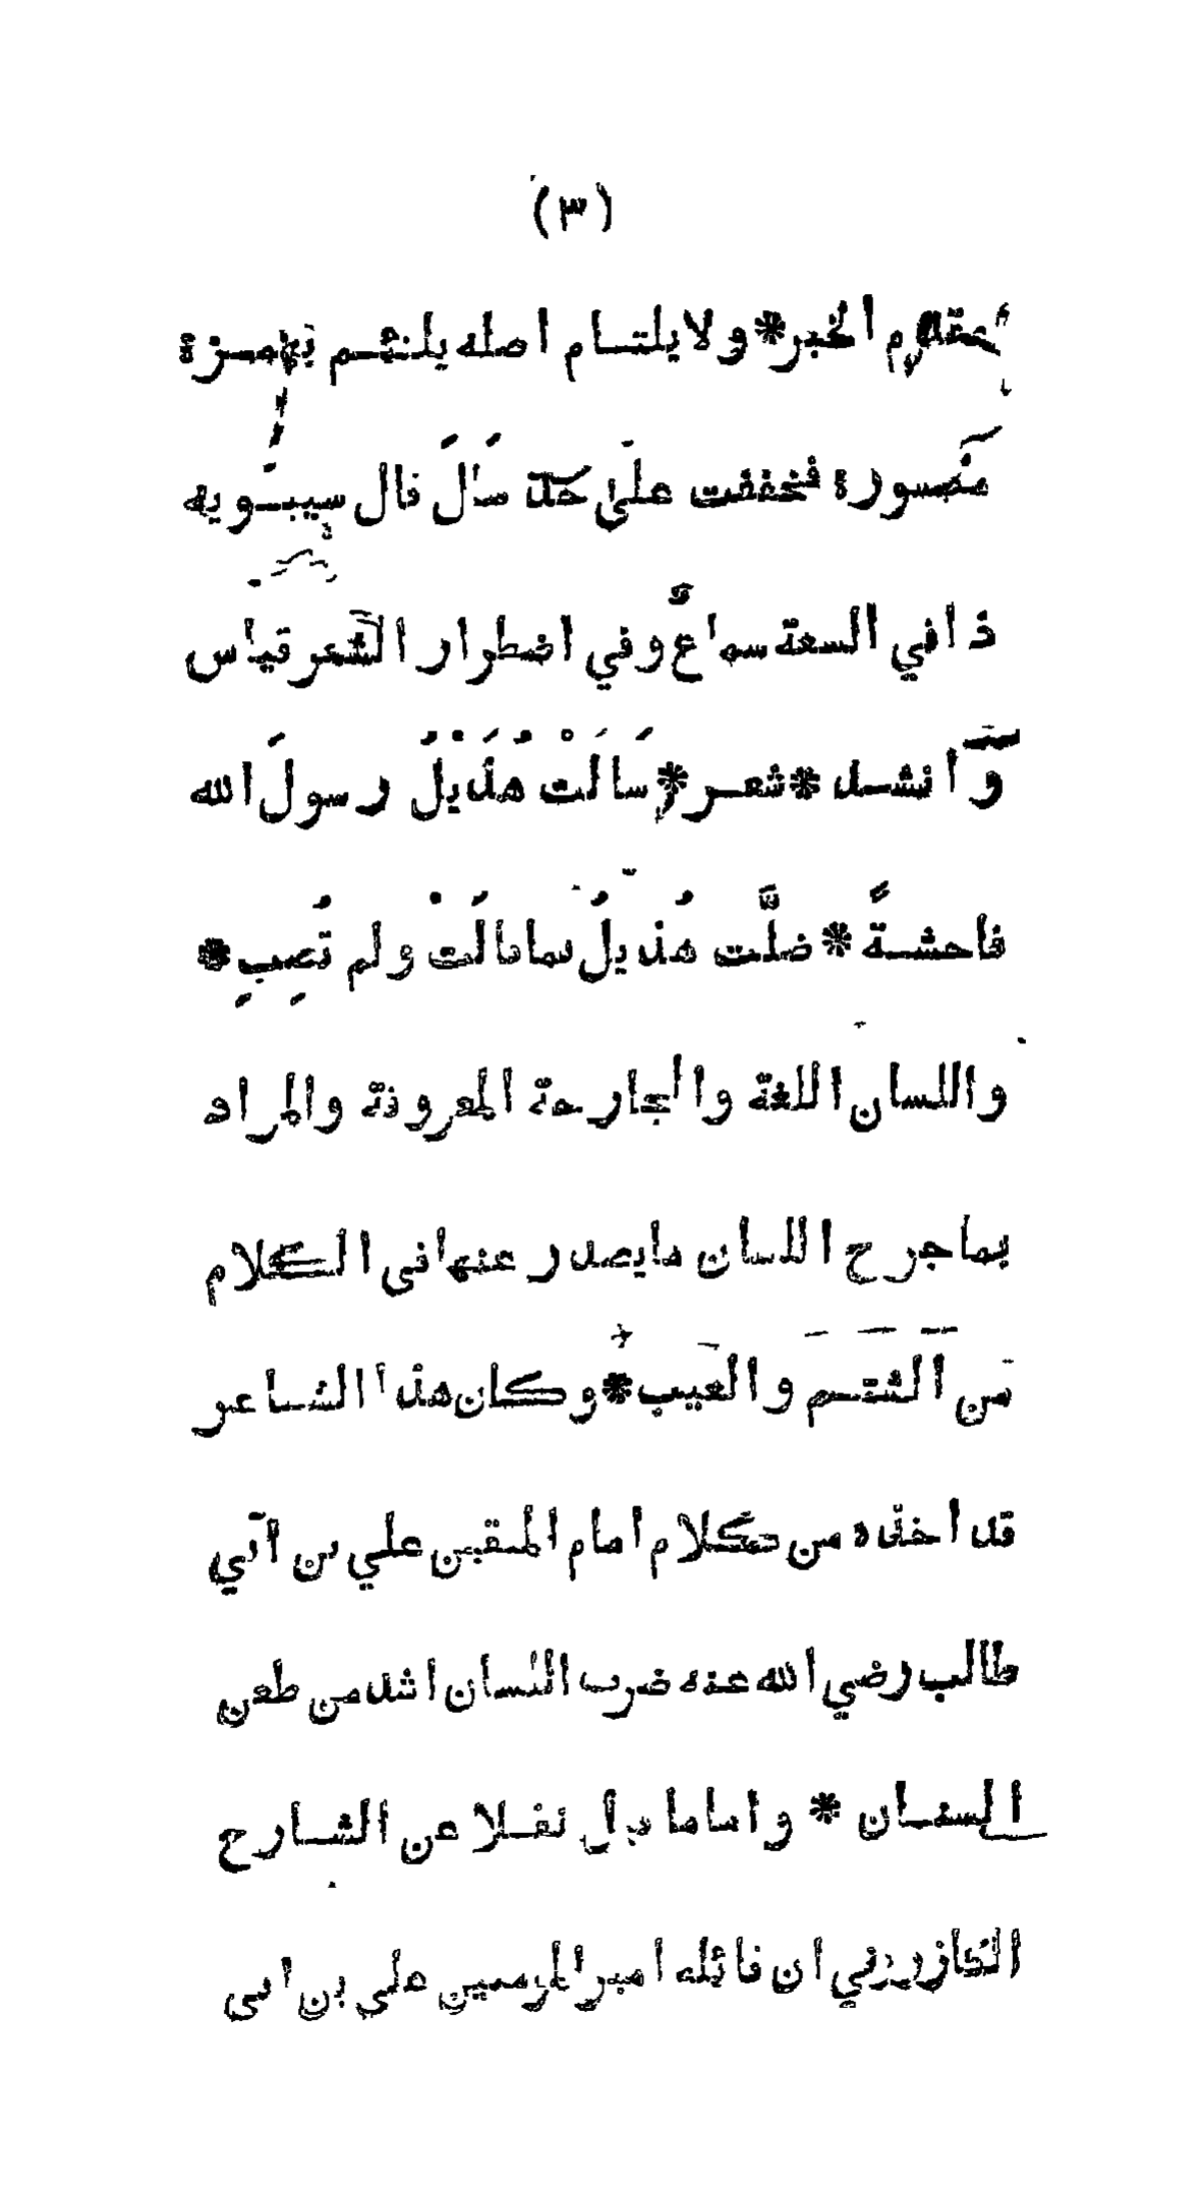 (٣)
متقدم الخبر * ولا يلتام اصله يلتئم بهمزة
مضمورة فخففت على حد سَالَ قال سيبويه
ذا في السعة سماعٌ وفي اضطرار الشعر قياس
وانشد * شعر * سَالَتْ هُذَيْلُ رسولَ الله
فاحشةً * ضلَّت هُذيلُ بما سالَتْ ولم تُصِبِ *
واللسان اللغة والجارحة المعروفة والمراد
بما جرح اللسان ما يصدر عنها في الكلام
من الشتم والعيب * وكان هذا الشاعر
قد اخذه من كلام امام المتقين علي بن ابي
طالب رضي الله عنه ضرب اللسان اشد من طعن
السنان * واما ما قيل نقلا عن الشارح
الكازروني ان قائله امير المومنين علي بن ابي